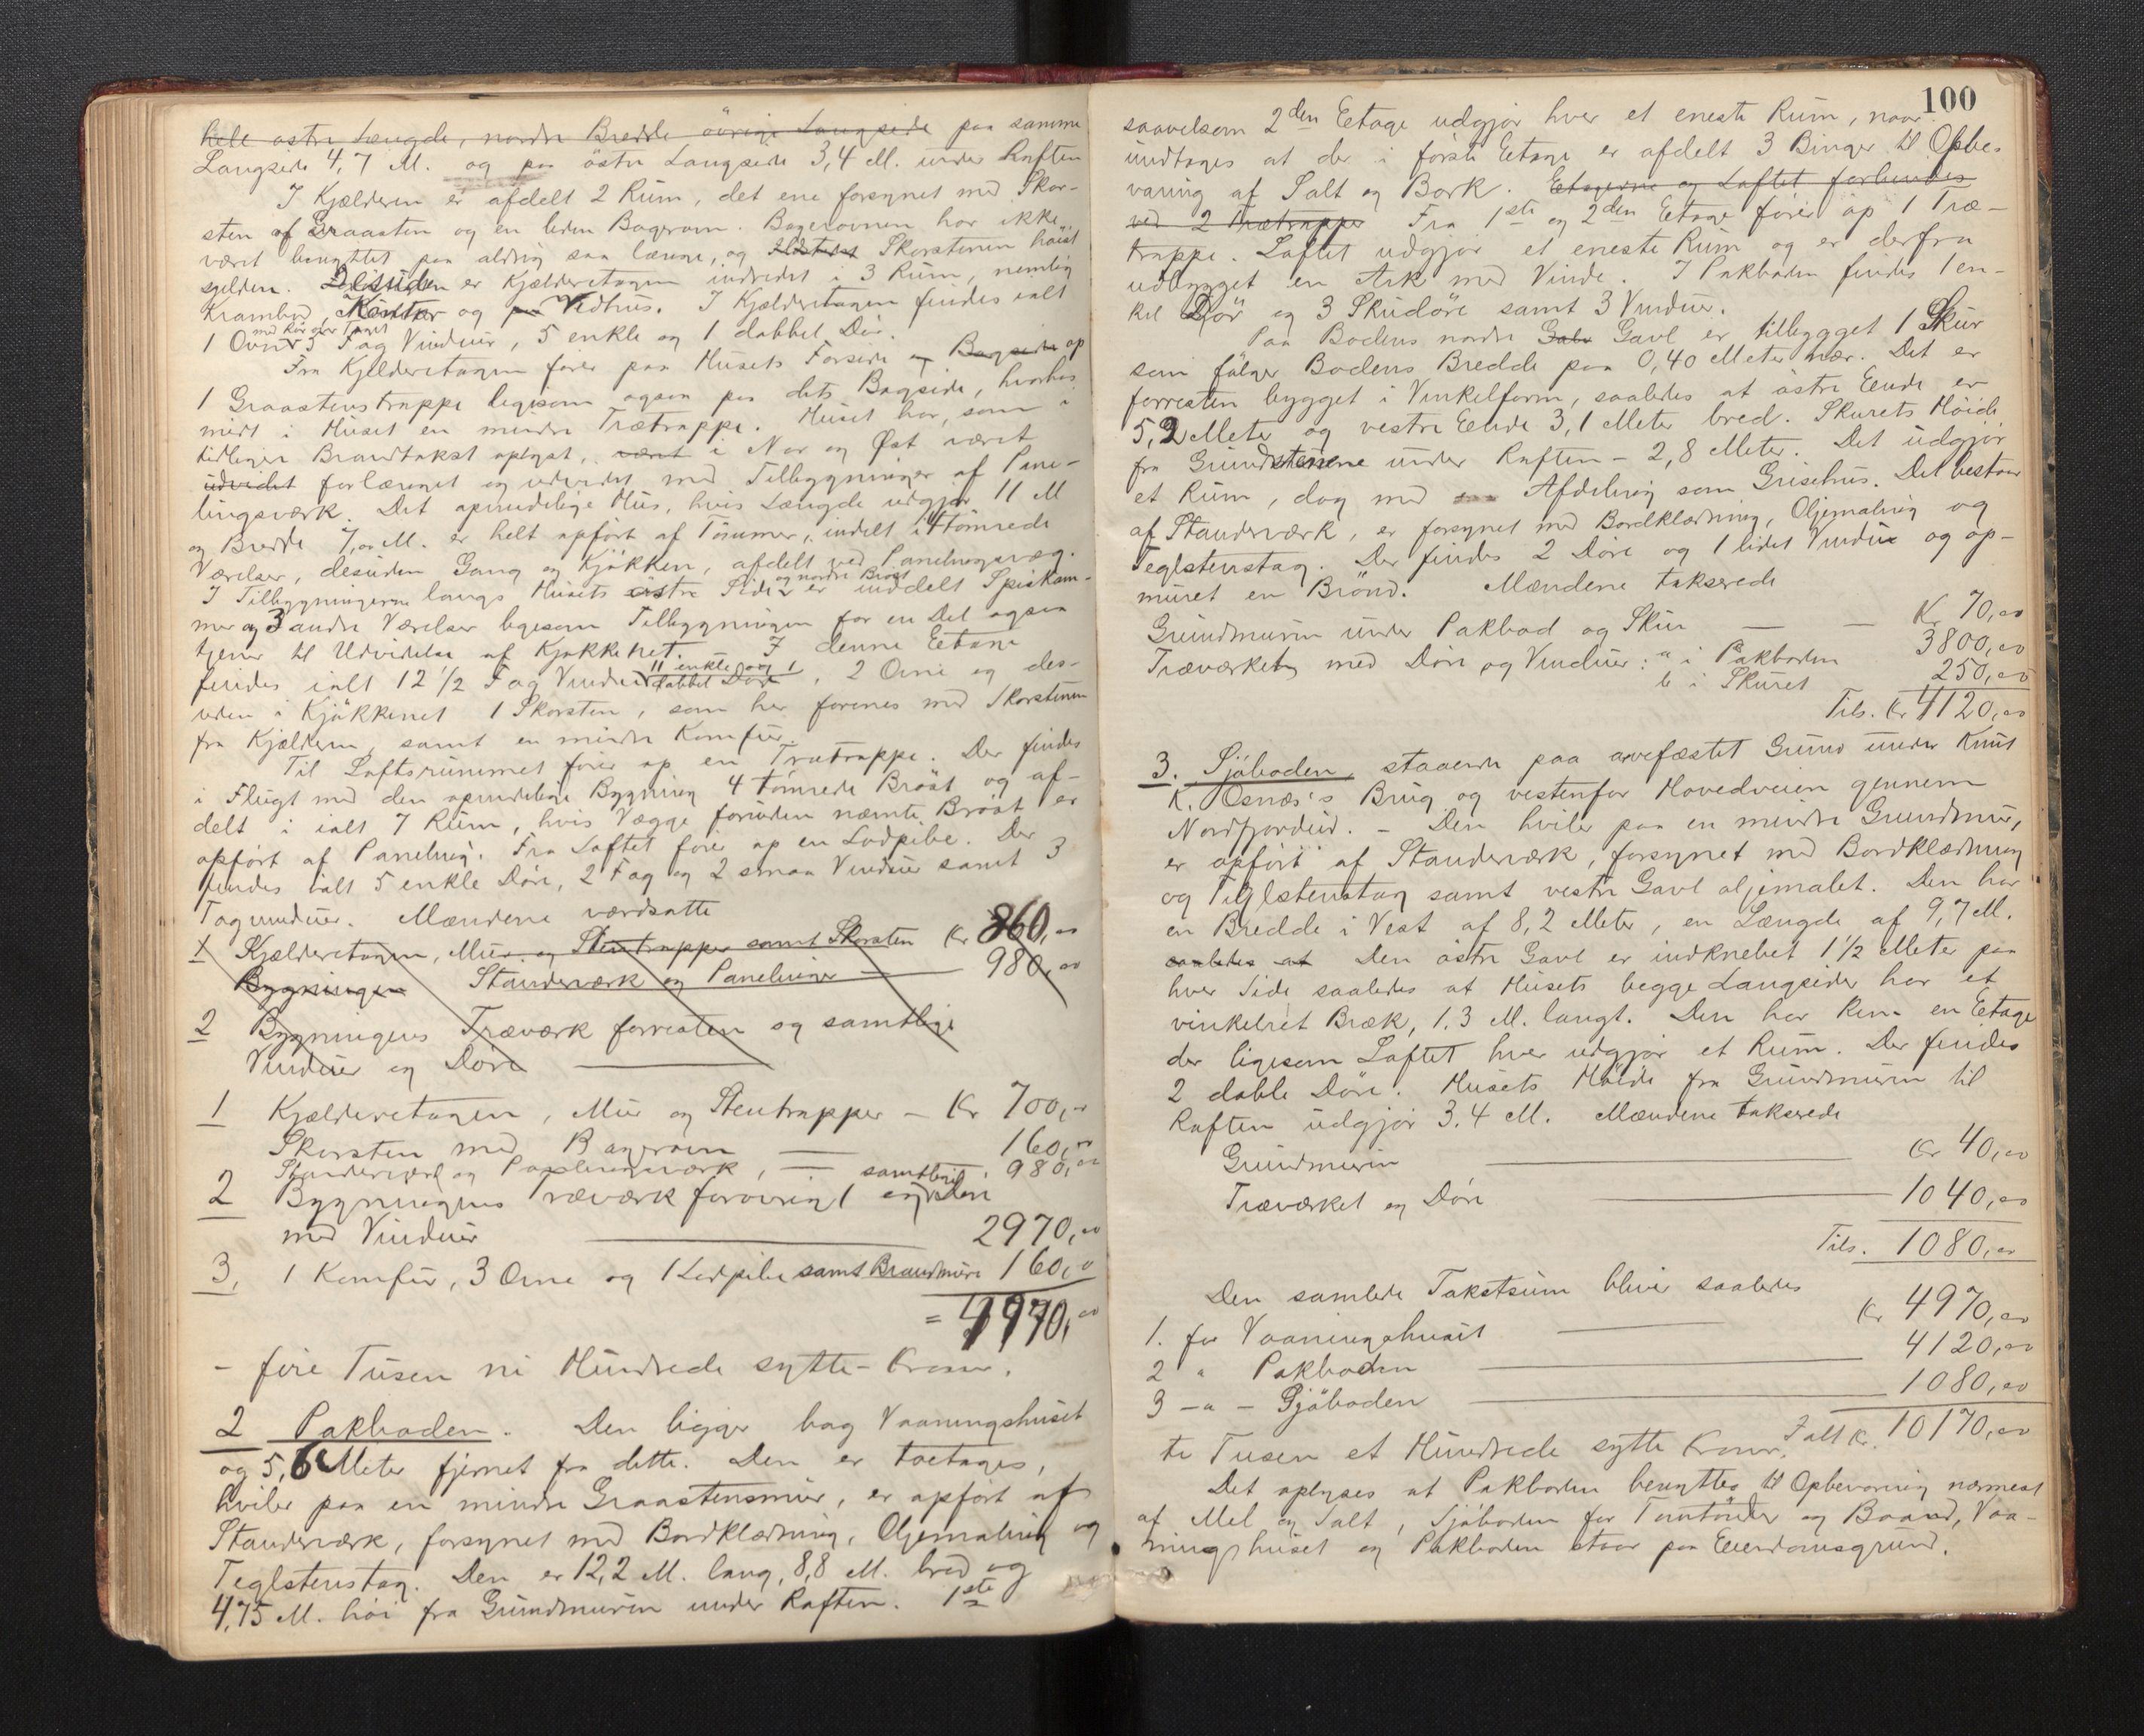 hele østre Længde, nordre Bredde øvrige Langside paa samme
Langside 4,7 M. og paa östre Langside 3,4 M. under Raften
I Kjælderen er afdelt 2 Rum, det ene forsynet med Skor-
sten af Graasten og en liden Bagerovn. Bagerovnen har ikke
været benyttet paa aldrig saa længe, og Skorstenen höist
sjelden. Desuden er Kjælderetagen indredet i 3 Rum, nemlig
Krambod, Kontor og Vedhus. I Kjælderetagen findes ialt
med Rör over Taget
1 Ovn, 5 Fag Vinduer, 5 enkle og 1 dobbel Dör.
Fra Kjelderetagen förer paa Husets Forside og Bagside op
1 Graastenstrappe ligesom ogsaa paa dets Bagside, hvorhos
midt i Huset en mindre Trætrappe. Huset har, som i
tidligere Brandtakst oplyst, været i Nor og Øst været
udvidet forlænget og udvidet med Tilbygninger af Pane-
lingsværk. Det oprindelige Hus, hvis Længde udgjör 11 M
og Bredde 7,00 M. er helt opfört af Tömmer, indelt i 4 tömrede
Værelser, desuden Gang og Kjökken, afdelt ved Panelingsvæg.
og nordre Bröst
I Tilbygningerne langs Husets östre Side er inddelt Spiskam-
mer og 3 andre Værelser ligesom Tilbygningen for en Del ogsaa
tjener til Udvidelse af Kjøkkenet. I denne Eetage
11 enkle og 1
findes ialt 12 1/2 Fag Vinduer dobbel Döre, 2 Ovne og des-
uden i Kjökkenet 1 Skorsten, som her forenes med Skorstenen
fra Kjælderen, samt en mindre Komfur.
Til Loftsrummet förer op en Trætrappe. Der findes
i Flugt med den oprindelige Bygning 4 tömrede Bröst og af-
delt i ialt 7 Rum, hvis Vægge foruden nævnte Bröst er
opfört af Paneling. Fra Loftet förer op en Lodpibe. Der
findes ialt 5 enkle Döre, 2 Fag og 2 smaa Vinduer samt 3
Tagvinduer. Mændene værdsatte
1 Kjælderetagen, Mur og Stentrapper samt Skorsten Kr 860,00
Bygningen Standerværk og Panelinger — 980,00
2 Bygningens Træværk forresten og samtlige
Vinduer og Döre —
1 Kjælderetagen, Mur og Stentrapper — Kr 700,00
Skorsten med Bagerovn — 160,00
Standerværk og Panelingsværk, — 980,00
samtlige
2 Bygningens Træværk forövrigt og Döre
med Vinduer — 2970,00
3, 1 Komfur, 3 Ovne og 1 Lodpibe samt Brandmure 160,00
= 4970,00
- fire Tusen ni Hundrede sytti - Kroner.
2 Pakboden. Den ligger bag Vaaningshuset
og 5,6 Meter fjernet fra dette. Den er toetages,
hviler paa en mindre Graastensmur, er opfört af
Standerværk, forsynet med Bordklædning, Oljemaling og
Teglstenstag. Den er 12,2 M. lang, 8,8 M. bred og
4,75 M. höi fra Grundmuren under Raften. 1ste
100
saavelsom 2den Eetage udgjör hver et eneste Rum, naar
undtages at der i förste Eetage er afdelt 3 Binger til Opbe-
varing af Salt og Bork. Etagerne og Loftet forbindes
ved 2 Trætrapper Fra 1ste og 2den Eetage förer op 1 Træ-
trappe. Loftet udgjör et eneste Rum og er derfra
udbygget en Ark med Vinde. I Pakboden findes 1 en-
kel Dör og 3 Skudöre samt 3 Vinduer.
Paa Bodens nordre Gabl Gavl er tilbygget 1 Skur
som fölger Bodens Bredde paa 0,40 Meter nær. Det er
forresten bygget i Vinkelform, saaledes at östre Eende er
5,2 Meter og vestre Eende 3,1 Meter bred. Skurets Höide
fra Grundstenene under Raften - 2,8 Meter. Det udgjör
et Rum, dog med Afdeling som Grisehus. Det bestaar
af Standerværk, er forsynet med Bordklædning, Oljemaling og
Teglstenstag. Der findes 2 Döre og 1 lidet Vindu og op-
muret en Brönd. Mændene takserede
Grundmuren under Pakbod og Skur — Kr 70,00
Træværket med Döre og Vinduer: a i Pakboden 3800,00
b i Skuret 250,00
Tils. Kr 4120,00
3. Sjöboden, staaende paa arvefæstet Grund under Knut
K. Osnæs's Brug og vestenfor Hovedveien gjennem
Nordfjordeid. - Den hviler paa en mindre Grundmur,
er opfört af Standerværk, forsynet med Bordklædning
og Teglstenstag samt vestre Gavl oljemalet. Den har
en Bredde i Vest af 8,2 Meter, en Længde af 9,7 M.
saaledes at Den östre Gavl er indknebet 1 1/2 Meter paa
hver Side saaledes at Husets begge Langsider har et
vinkelret Bræk, 1.3 M. langt. Den har kun en Eetage
der ligesom Loftet hver udgjör et Rum. Der findes
2 doble Döre. Husets Höide fra Grundmuren til
Raften udgjör 3.4 M. Mændene takserede
Grundmuren — Kr 40,00
Træværket og Döre — 1040,00
Tils. 1080,00
Den samlede Takstsum bliver saaledes
1. for Vaaningshuset — Kr 4970,00
2 " Pakboden — 4120,00
3 - " - Sjöboden — 1080,00
Ialt Kr. 10170,00
ti Tusen et Hundrede sytti Kroner.
Det oplyses at Pakboden benyttes til Opbevaring nærmest
af Mel og Salt, Sjöboden for Tomtönder og Baand, Vaa-
ningshuset og Pakboden staar paa Eiendomsgrund.